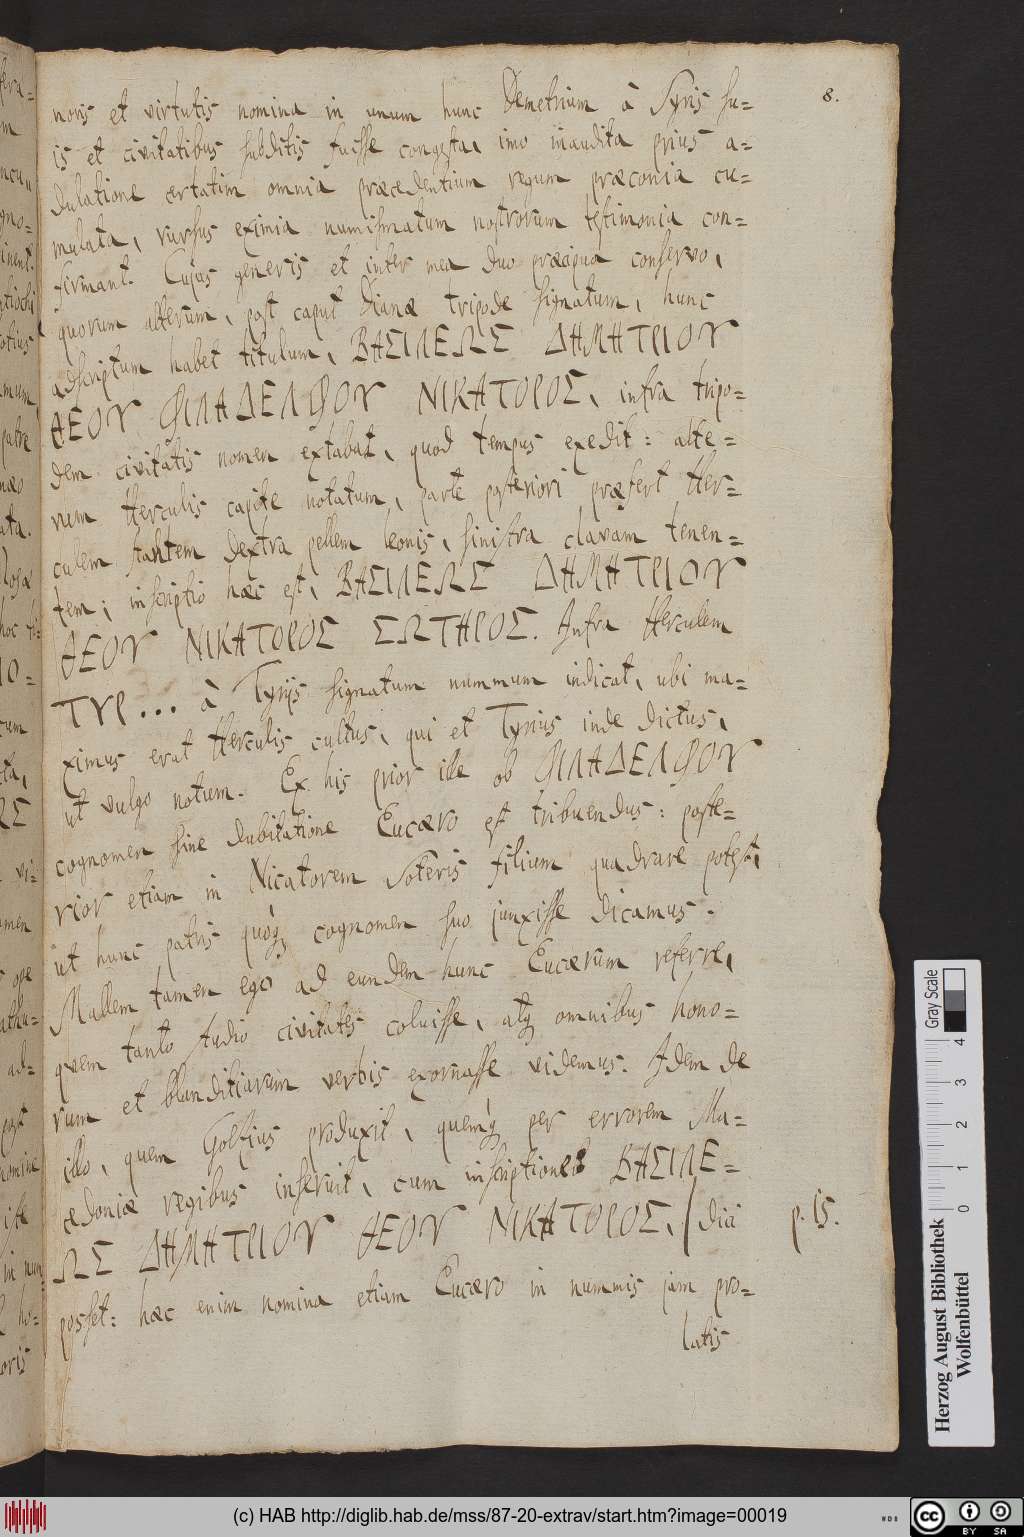 8.
noris et virtutis nomina in unum hunc Demetrium à Syris su=
is et civitatibus subditis fuisse congesta, imo inaudita prius a=
dulatione certatim omnia præcedentium regum præconia cu=
mulata, rursus eximia numismatum nostrorum testimonia con=
firmant. Cujus generis et inter mea duo præcipua conservo,
quorum alterum, post caput Dianæ tripode signatum, hunc
adscriptum habet titulum, ΒΑΣΙΛΕΩΣ ΔΗΜΗΤΡΙΟΥ
ΘΕΟΥ ΦΙΛΑΔΕΛΦΟΥ ΝΙΚΑΤΟΡΟΣ, infra tripo=
dem civitatis nomen extabat, quod tempus exedit: alte=
rum Herculis capite notatum, parte posteriori præfert Her=
culem stantem dextra pellem leonis, sinistra clavam tenen=
tem; inscriptio hæc est, ΒΑΣΙΛΕΩΣ ΔΗΜΗΤΡΙΟΥ
ΘΕΟΥ ΝΙΚΑΤΟΡΟΣ ΣΩΤΗΡΟΣ. Infra Herculem
ΤΥΡ... à Tyriis signatum nummum indicat, ubi ma=
ximus erat Herculis cultus, qui et Tyrius inde dictus,
ut vulgo notum. Ex his prior ille ob ΦΙΛΑΔΕΛΦΟΥ
cognomen sine dubitatione Eucæro est tribuendus: poste=
rior etiam in Nicatorem Soteris filium quadrare potest,
ut hunc patris quoq; cognomen suo junxisse dicamus.
Mallem tamen ego ad eundem hunc Eucærum referre,
quem tanto studio civitates coluisse, atq; omnibus hono=
rum et blanditiarum verbis exornasse videmus. Idem de
illo, quem Goltzius produxit, quemq; per errorem Ma=
cedoniæ regibus inseruit, cum inscriptione ΒΑΣΙΛΕ=
ΩΣ ΔΗΜΗΤΡΙΟΥ ΘΕΟΥ ΝΙΚΑΤΟΡΟΣ, dici
p. 15.
posset: hæc enim nomina etiam Eucæro in nummis jam pro=
latis
Gray Scale
0 1 2 3 4
Herzog August Bibliothek
Wolfenbüttel
(c) HAB http://diglib.hab.de/mss/87-20-extrav/start.htm?image=00019
cc BY SA